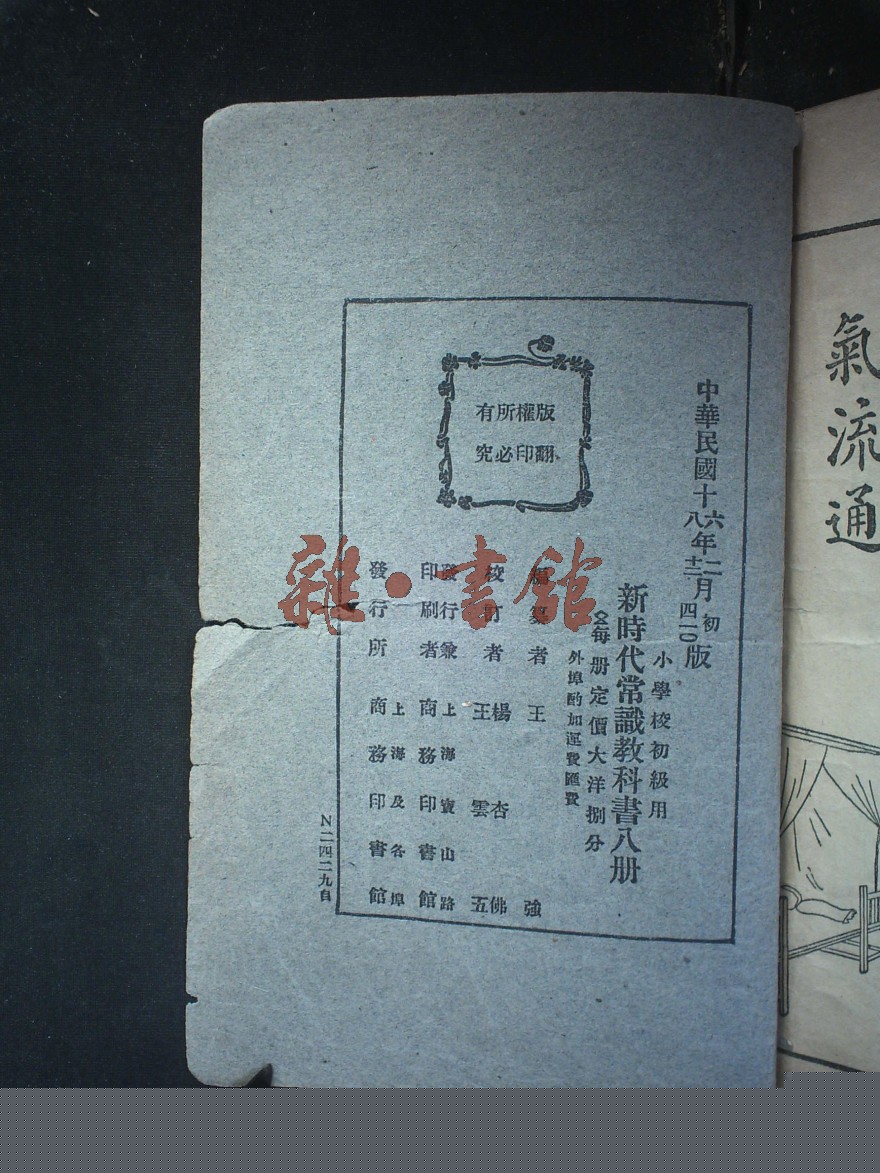 氣流通
中華民國十六年二月初版
八 十二 四一〇
小學校初級用
新時代常識教科書八册
每册定價大洋捌分
外埠酌加運費匯費
編纂者 王強
校訂者 楊杏佛 王雲五
發行兼印刷者 上海寶山路 商務印書館
發行所 上海及各埠 商務印書館
版權所有
翻印必究
N二四二九自
雜·書館